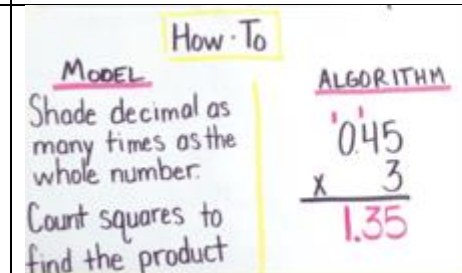 How-To
MODEL
Shade decimal as
many times as the
whole number.
Count squares to
find the product
ALGORITHM
1 1
0.45
x 3
1.35